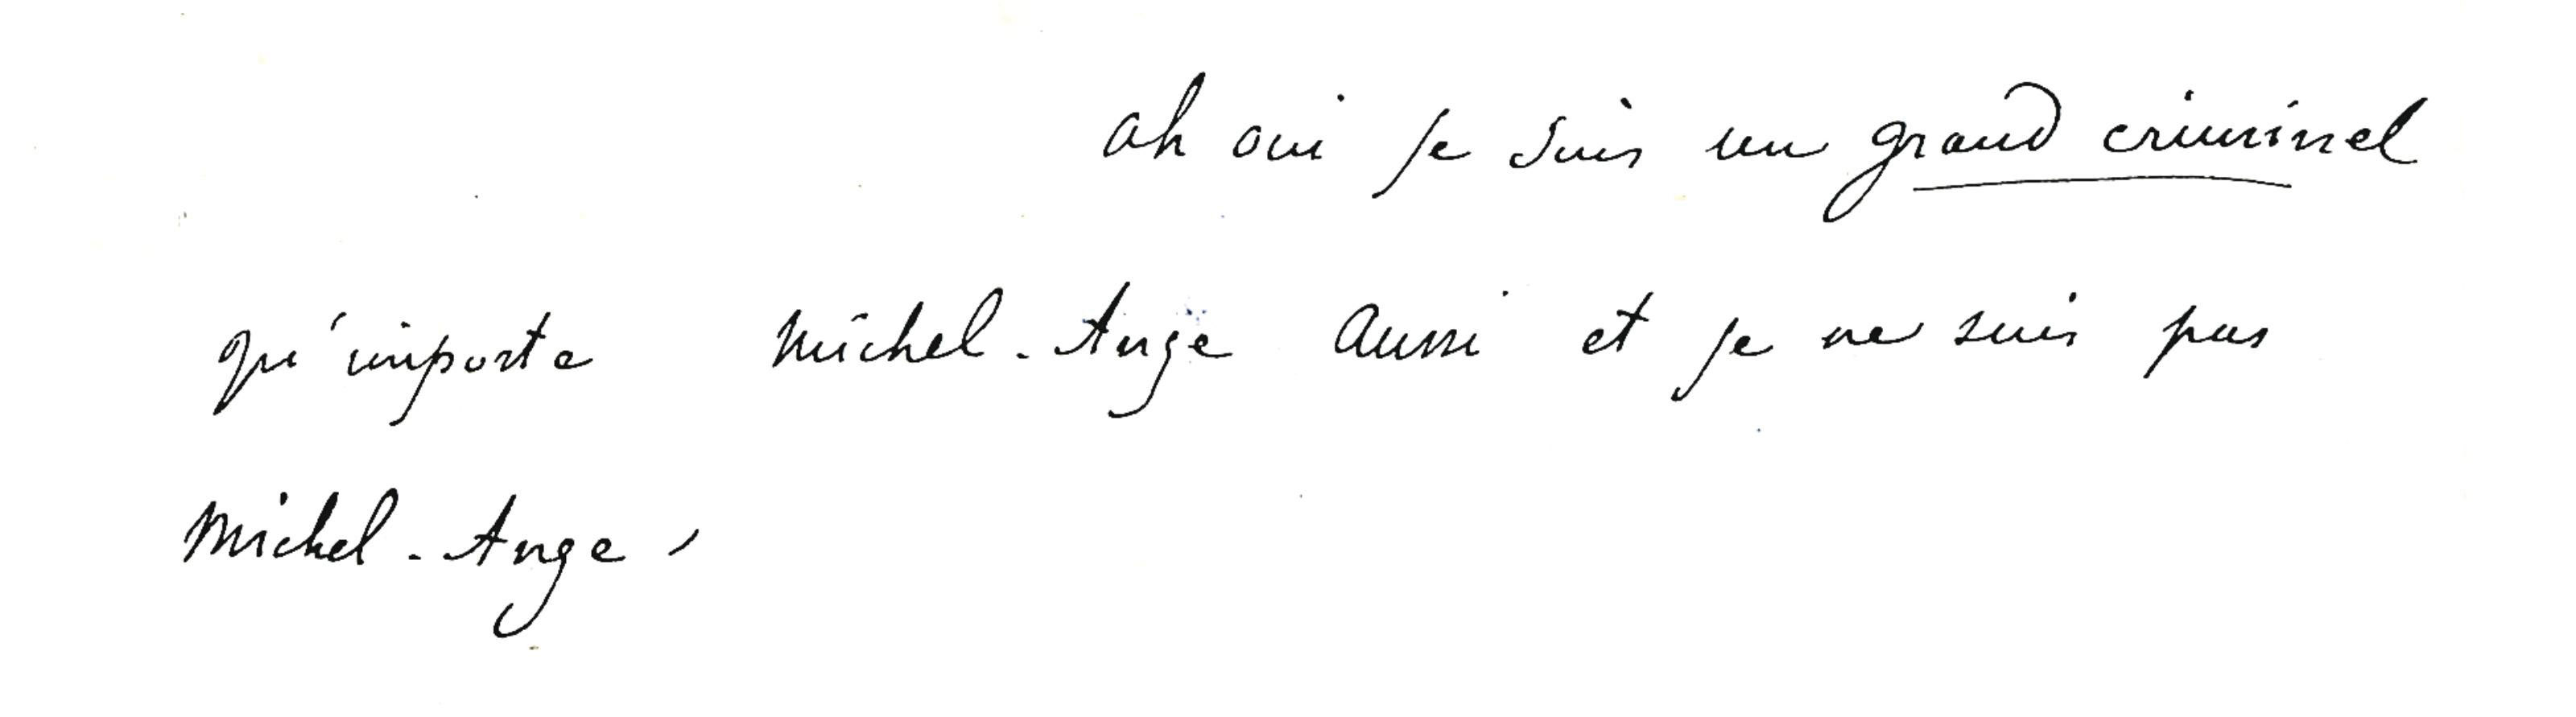 ah oui je suis un grand criminel
qu'importe Michel-Ange aussi et je ne suis pas
Michel-Ange,